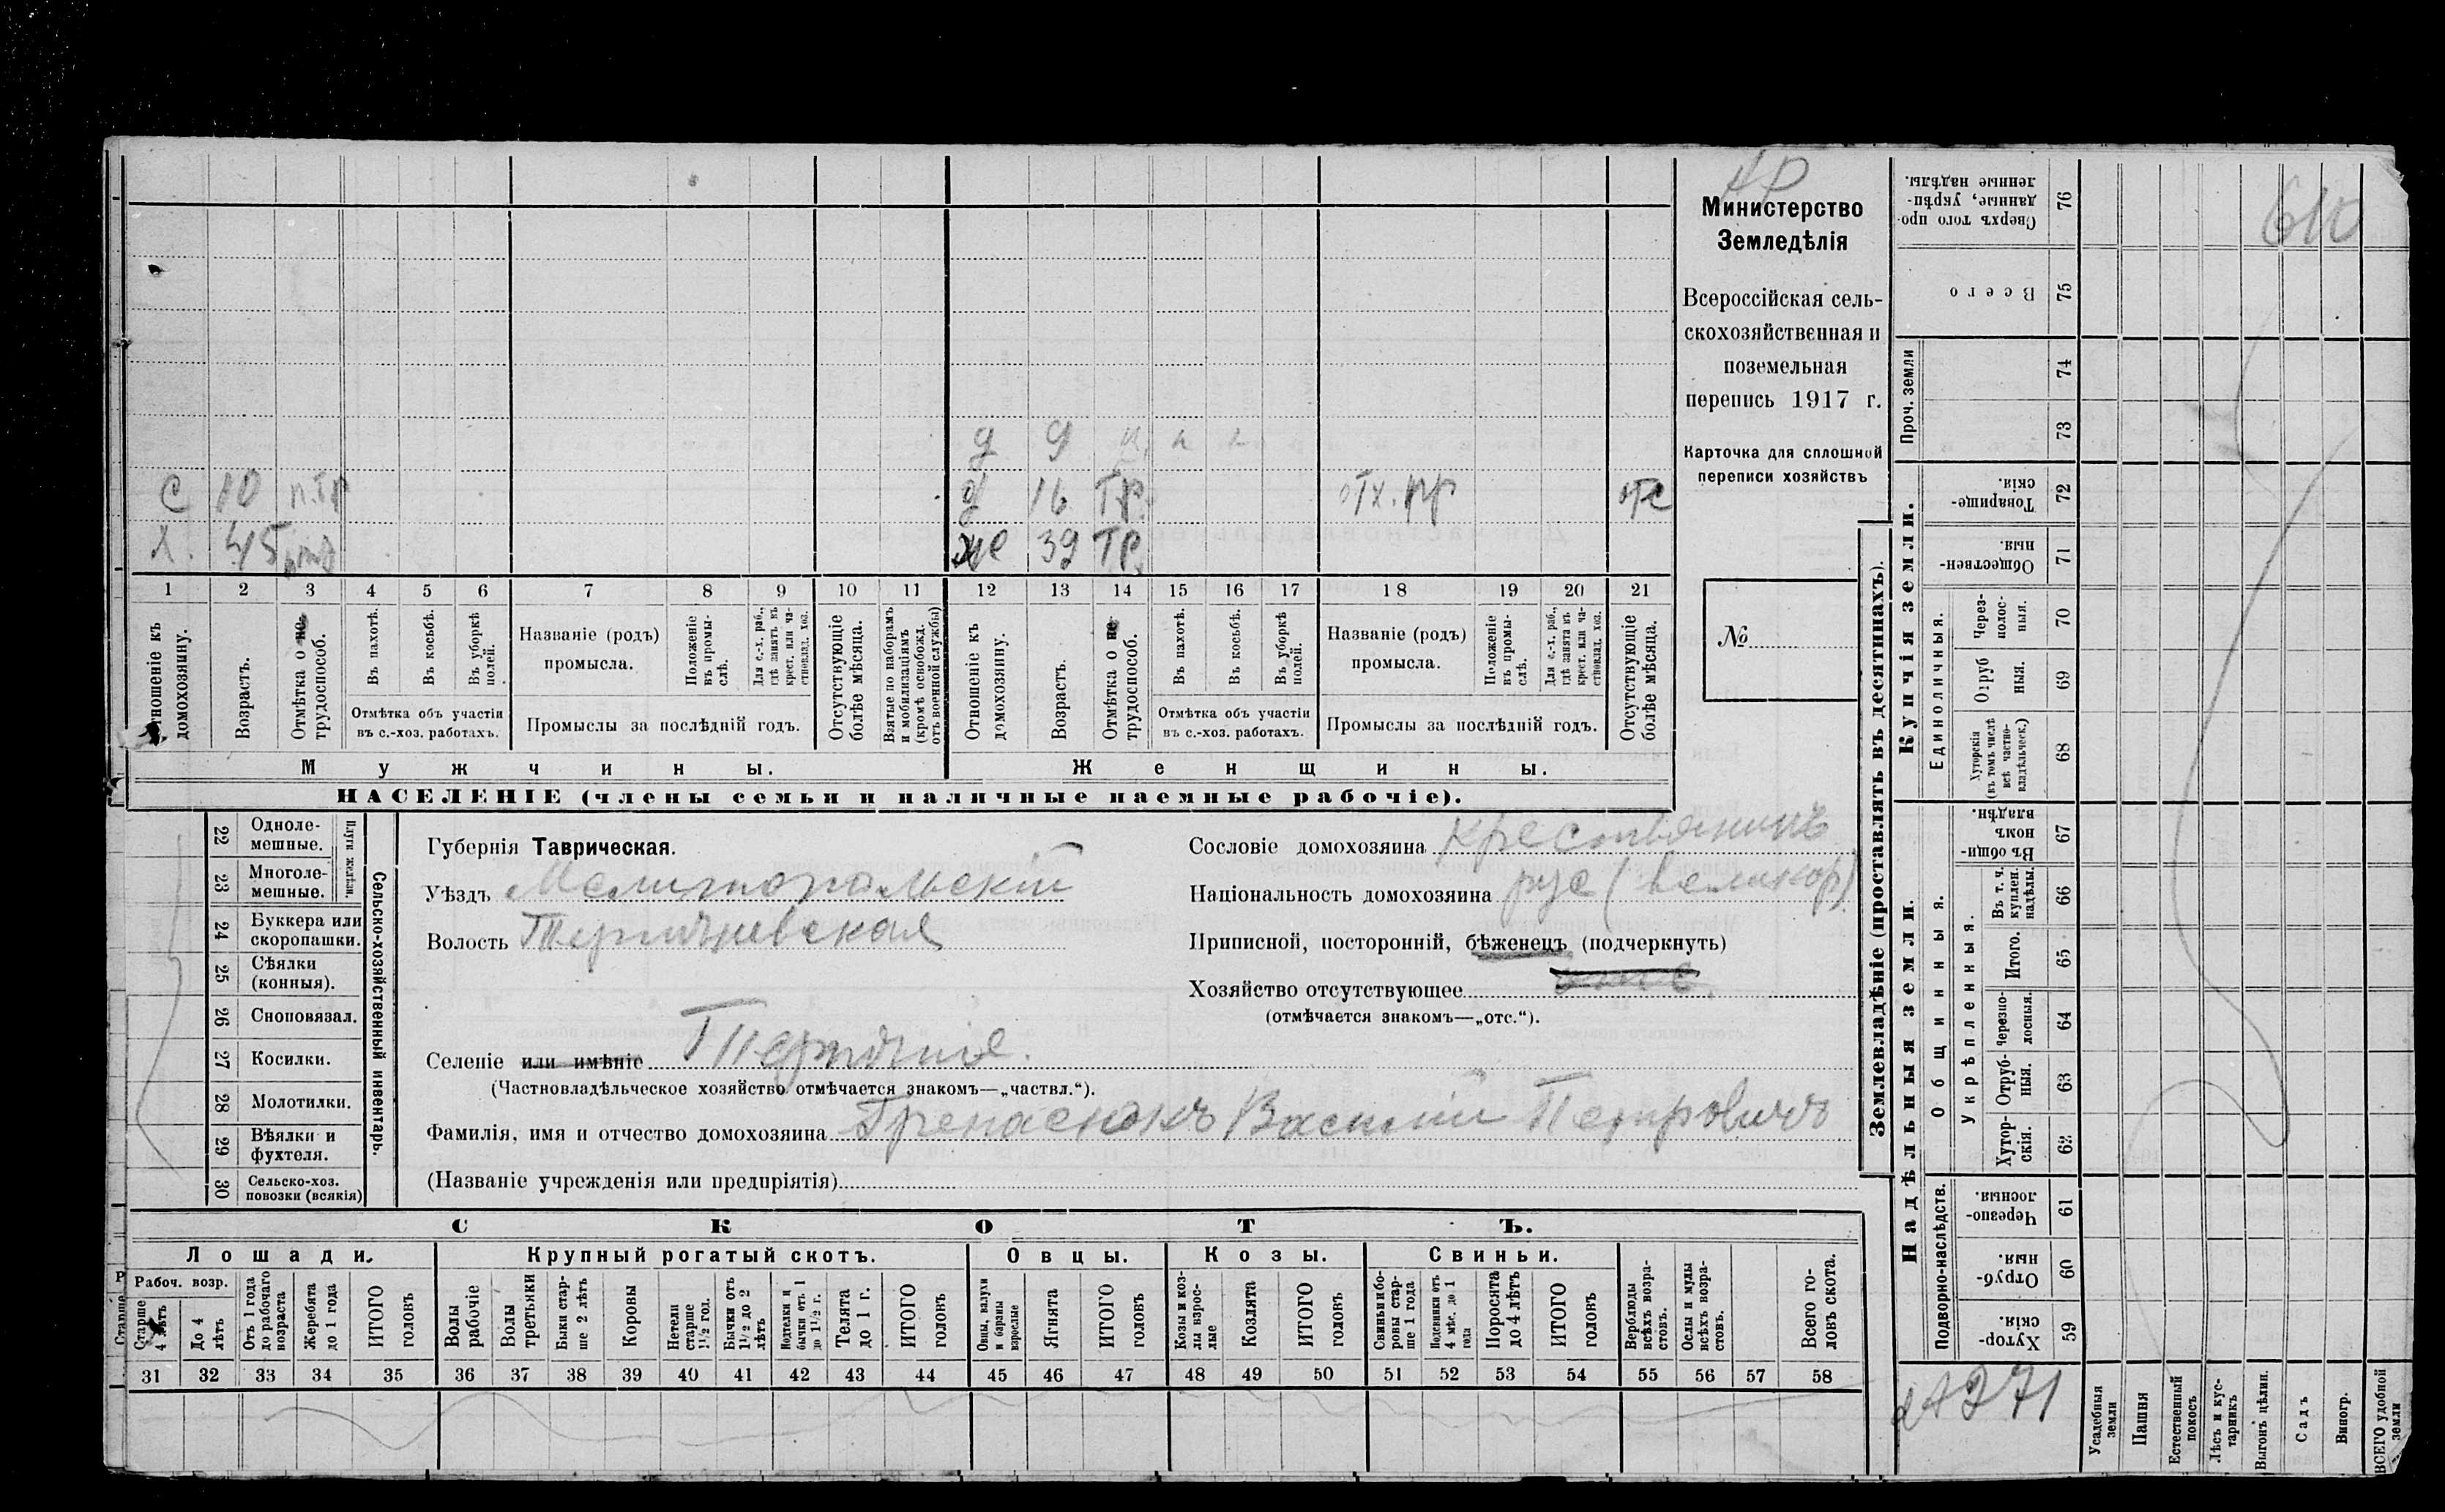 Министерство
Земледѣлія
Всероссійская сель-
скохозяйственная и
поземельная
перепись 1917 г.
Карточка для сплошной
переписи хозяйствъ
№
610
д 9
с 10 п.тр д 16 тр. отх. пр отс
х. 45 же 39 тр.
1 2 3 4 5 6 7 8 9 10 11 12 13 14 15 16 17 18 19 20 21
Отношеніе къ домохозяину.
Возрастъ.
Отмѣтка о не-трудоспособ.
Въ пахотѣ.
Въ косьбѣ.
Въ уборкѣ полей.
Отмѣтка объ участіи
въ с.-хоз. работахъ.
Названіе (родъ)
промысла.
Положеніе въ промы-слѣ.
Для с.-х. раб., гдѣ занятъ въ крест. или ча-стновлад. хоз.
Промыслы за послѣдній годъ.
Отсутствующіе болѣе мѣсяца.
Взятые по наборамъ и мобилизаціямъ (кромѣ освобожд. отъ военной службы)
Отношеніе къ домохозяину.
Возрастъ.
Отмѣтка о не-трудоспособ.
Въ пахотѣ.
Въ косьбѣ.
Въ уборкѣ полей.
Отмѣтка объ участіи
въ с.-хоз. работахъ.
Названіе (родъ)
промысла.
Положеніе въ промы-слѣ.
Для с.-х. раб., гдѣ занята въ крест. или ча-стновлад. хоз.
Промыслы за послѣдній годъ.
Отсутствующіе болѣе мѣсяца.
Мужчины. Женщины.
НАСЕЛЕНІЕ (члены семьи и наличные наемные рабочіе).
Сельско-хозяйственный инвентарь.
Плуги желѣзн.
22 Одноле-мешные.
23 Многоле-мешные.
24 Буккера или скоропашки.
25 Сѣялки (конныя).
26 Сноповязал.
27 Косилки.
28 Молотилки.
29 Вѣялки и фухтеля.
30 Сельско-хоз. повозки (всякія)
Губернія Таврическая.
Уѣздъ Мелитопольскій
Волость
Селеніе или имѣніе
(Частновладѣльческое хозяйство отмѣчается знакомъ—„частвл.“).
Фамилія, имя и отчество домохозяина Василій Петровичъ
(Названіе учрежденія или предпріятія)
Сословіе домохозяина крестьянинъ
Національность домохозяина рус (великор)
Приписной, посторонній, бѣженецъ (подчеркнуть)
Хозяйство отсутствующее
(отмѣчается знакомъ—„отс.“).
СКОТЪ.
Лошади. Крупный рогатый скотъ. Овцы. Козы. Свиньи.
Рабоч. возр.
Старше 4 лѣтъ
До 4 лѣтъ
Отъ 1 года до рабочаго возраста
Жеребята до 1 года
ИТОГО головъ
Волы рабочіе
Волы третьяки
Быки стар-ше 2 лѣтъ
Коровы
Нетели старше 1½ год.
Бычки отъ 1½ до 2 лѣтъ
Нетелки и бычки отъ 1 до 1½ г.
Телята до 1 г.
ИТОГО головъ
Овцы, валухи и бараны взрослые
Ягнята
ИТОГО головъ
Козы и коз-лы взрос-лые
Козлята
ИТОГО головъ
Свиньи и бо-ровы стар-ше 1 года
Подсвинки отъ 4 мѣс. до 1 года
Поросята до 4 лѣтъ
ИТОГО головъ
Верблюды всѣхъ возра-стовъ.
Ослы и мулы всѣхъ возра-стовъ.
Всего го-ловъ скота.
31 32 33 34 35 36 37 38 39 40 41 42 43 44 45 46 47 48 49 50 51 52 53 54 55 56 57 58
Землевладѣніе (проставлять въ десятинахъ).
Купчія земли.
Надѣльныя земли.
Проч. земли
Единоличныя.
Общинныя.
Укрѣпленныя.
Подворно-наслѣдств.
Сверхъ того про-данные, укрѣп-ленные надѣлы. 76
Всего 75
74
73
Товарище-скія. 72
Обществен-ныя. 71
Через-полос-ныя. 70
Отруб ныя. 69
Хуторскія (въ томъ числѣ всѣ частно-владѣльческ.) 68
Въ общин-номъ владѣн. 67
Въ т. ч. куплен. надѣлы. 66
Итого. 65
Черезпо-лосныя. 64
Отруб-ныя. 63
Хутор-скія. 62
Черезпо-лосныя. 61
Отруб-ныя. 60
Хутор-скія. 59
Усадебныя земли
Пашня
Естественный покосъ
Лѣсъ и кус-тарникъ
Выгонъ цѣлин.
Садъ
Виногр.
ВСЕГО удобной земли